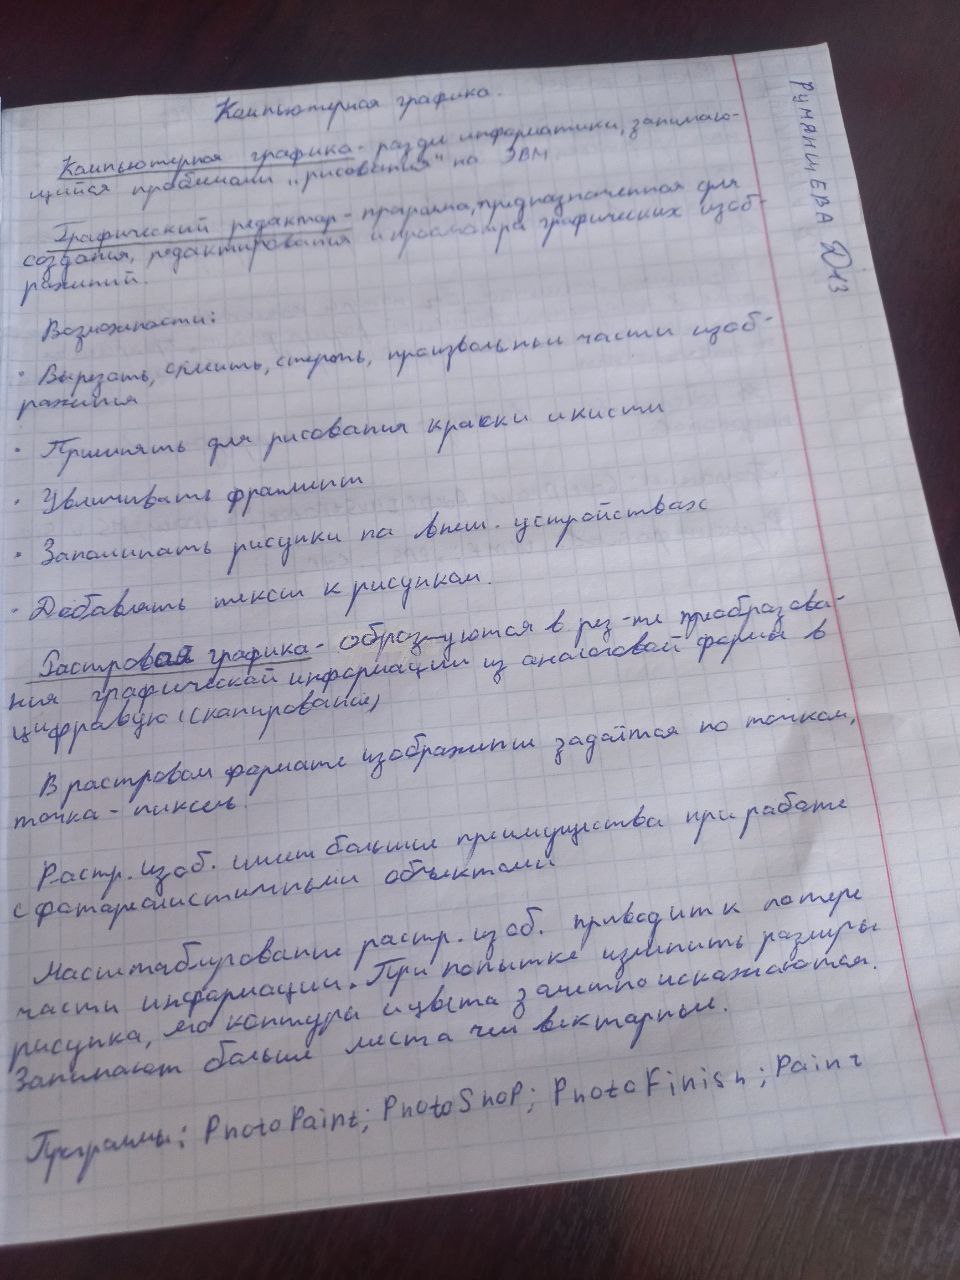 Компьютерная графика.
Компьютерная графика - раздел информатики, занимаю-
щийся проблемами „рисования" на ЭВМ
Графический редактор - программа, предназначенная для
создания, редактирования и просмотра графических изоб-
ражений.
Возможности:
· Вырезать, склеить, стереть, произвольные части изоб-
ражения
· Применять для рисования краски и кисти
· Увеличивать фрагмент
· Запоминать рисунки на внеш. устройствах
· Добавлять текст к рисункам.
Растровая графика - образ-уются в рез-те преобразова-
ния графической информации из аналоговой формы в
цифравую (сканирование)
В растровом формате изображение задаётся по точкам,
точка - пиксель.
Растр. изоб. имеет большие преимущества при работе
с фотареалистичными объектами
Масштабирование растр. изоб. приводит к потере
части информации. При попытке изменить размеры
рисунка, его контуры и цвета заметно искажаются.
Занимают больше места чем векторные.
Программы: PhotoPaint; PhotoShop; PhotoFinish; Paint
РУМЯНЦЕВА Д13